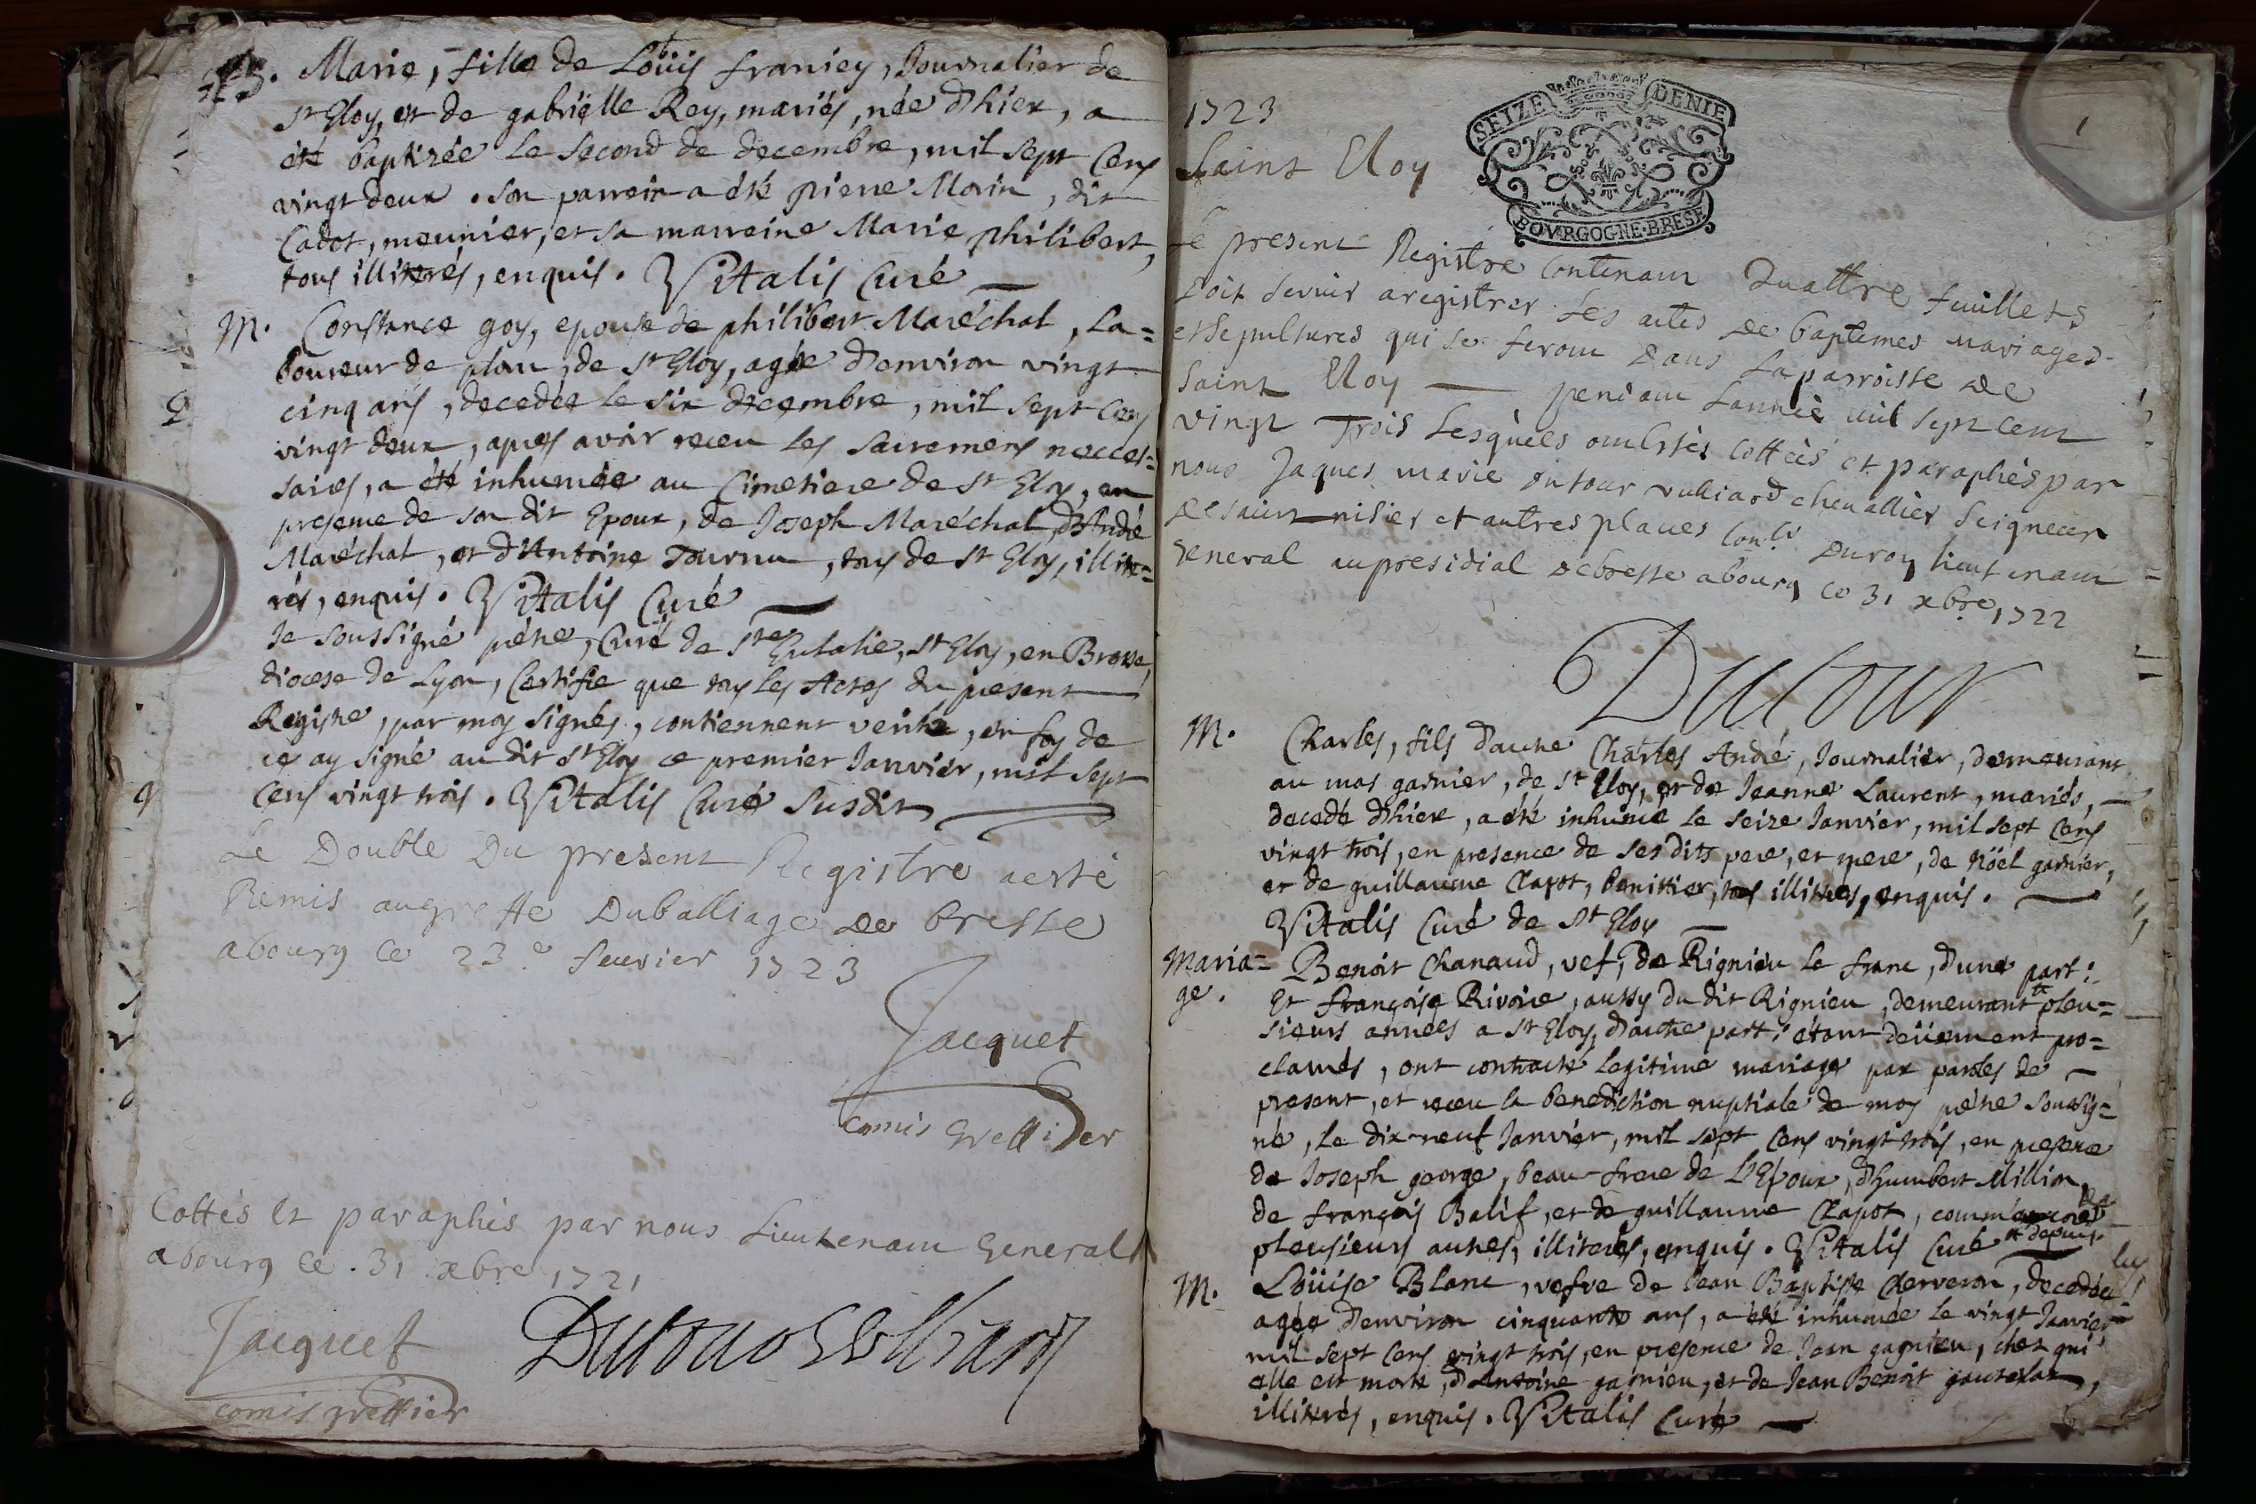 B. Marie, fille de Loüis franiey, Journalier de
st Eloy, et de gabriëlle Rey, mariés, née d'hier, a
été baptizée le second de decembre, mil sept Cens
vingt deux. son parrein a été pierre Morin, dit
Cadot, meunier, et sa marreine Marie philibert,
tous illiterés, enquis. Vitalis Curé
M. Constance goy, epouse de philibert Maréchal, La=
boureur de plan, de st Eloy, agée d'environ vingt
cinq ans, decedée le six decembre, mil sept Cens
vingt deux, apres avoir receu les sacremens necces=
saires, a été inhumée au Cimetiere de st Eloy, en
presence de son dit Epoux, de Joseph Maréchal, d'André
Maréchal, et d'Antoine Tournu, tous de st Eloy, illite=
rés, enquis. Vitalis Curé
Je soussigné prétre, Curé de ste Eulalie, st Eloy, en Bresse,
diocese de Lyon, Certifie que tous les Actes du present
Registre, par moy signés, contiennent verité, en foy de
ce ay signé au dit st Eloy ce premier Janvier, mil sept
Cens vingt trois. Vitalis Curé susdit
Le Double Du present Registre aesté
Remis augreffe Duballiage de bresse
abourg ce 23e feuvrier 1723
Jacquet
comis Greffier
Cottés et paraphés par nous Lieutenant General
abourg ce 31 xbre 1721
Jacquet
comis greffier
Dutour Vulliard
1723
SEIZE DENIE
BOURGOGNE·BRESE
Saint Eloy
Le present Registre Contenant Quattre feuillets
Doit servir aregistrer les actes de baptemes mariages
et sepultures qui se feront dans laparroisse de
Saint Eloy pendant Lanneé mil sept cent
vingt Trois Lesquels ontestés Cottéés et paraphés par
nous Jaques marie dutour vulliard chevallier Seigneur
de saint nisier et autres places Conlr Duroy lieutenant
General aupresidial debresse abourg ce 31 xbre, 1722
Dutour
M. Charles, fils d'autre Charles André, Journalier, demeurant
au mas garnier, de st Eloy, et de Jeanne Laurent, mariés,
decedé d'hiere, a été inhumé le seize Janvier, mil sept Cens
vingt trois, en presence de ses dits pere, et mere, de Nöel garnier,
et de guillaume Chapot, benittier, tous illiterés, enquis.
Vitalis Curé de st Eloy
Maria=
ge. Benoit Chanaud, vef, de Rignieu le franc, d'une part:
Et françoise Rivoire, aussy du dit Rignieu, demeurant pleu=
sieurs années a st Eloy, d'autre part: étant deüement pro=
clamés, ont contracté legitime mariage par paroles de
present, et receu la benediction nuptiale de moy prétre soussig=
né, le dix-neuf Janvier, mil sept Cens vingt trois, en presence
de Joseph george, beau-frere de l'Epoux, d'humbert Million,
de françois Balif, et de guillaume Chapot,
pleusieurs autres, illiterés, enquis. Vitalis Curé depuis
M. Loüise Blanc, vefve de Jean Baptiste Cherveron, decedée
agée d'environ cinquante ans, a été inhumée le vingt Janvier
mil sept Cens vingt trois, en presence de Jean gagnieu, chez qui
elle est morte, d'Antoine gagnieu, et de Jean Benoit
illiterés, enquis. Vitalis Curé